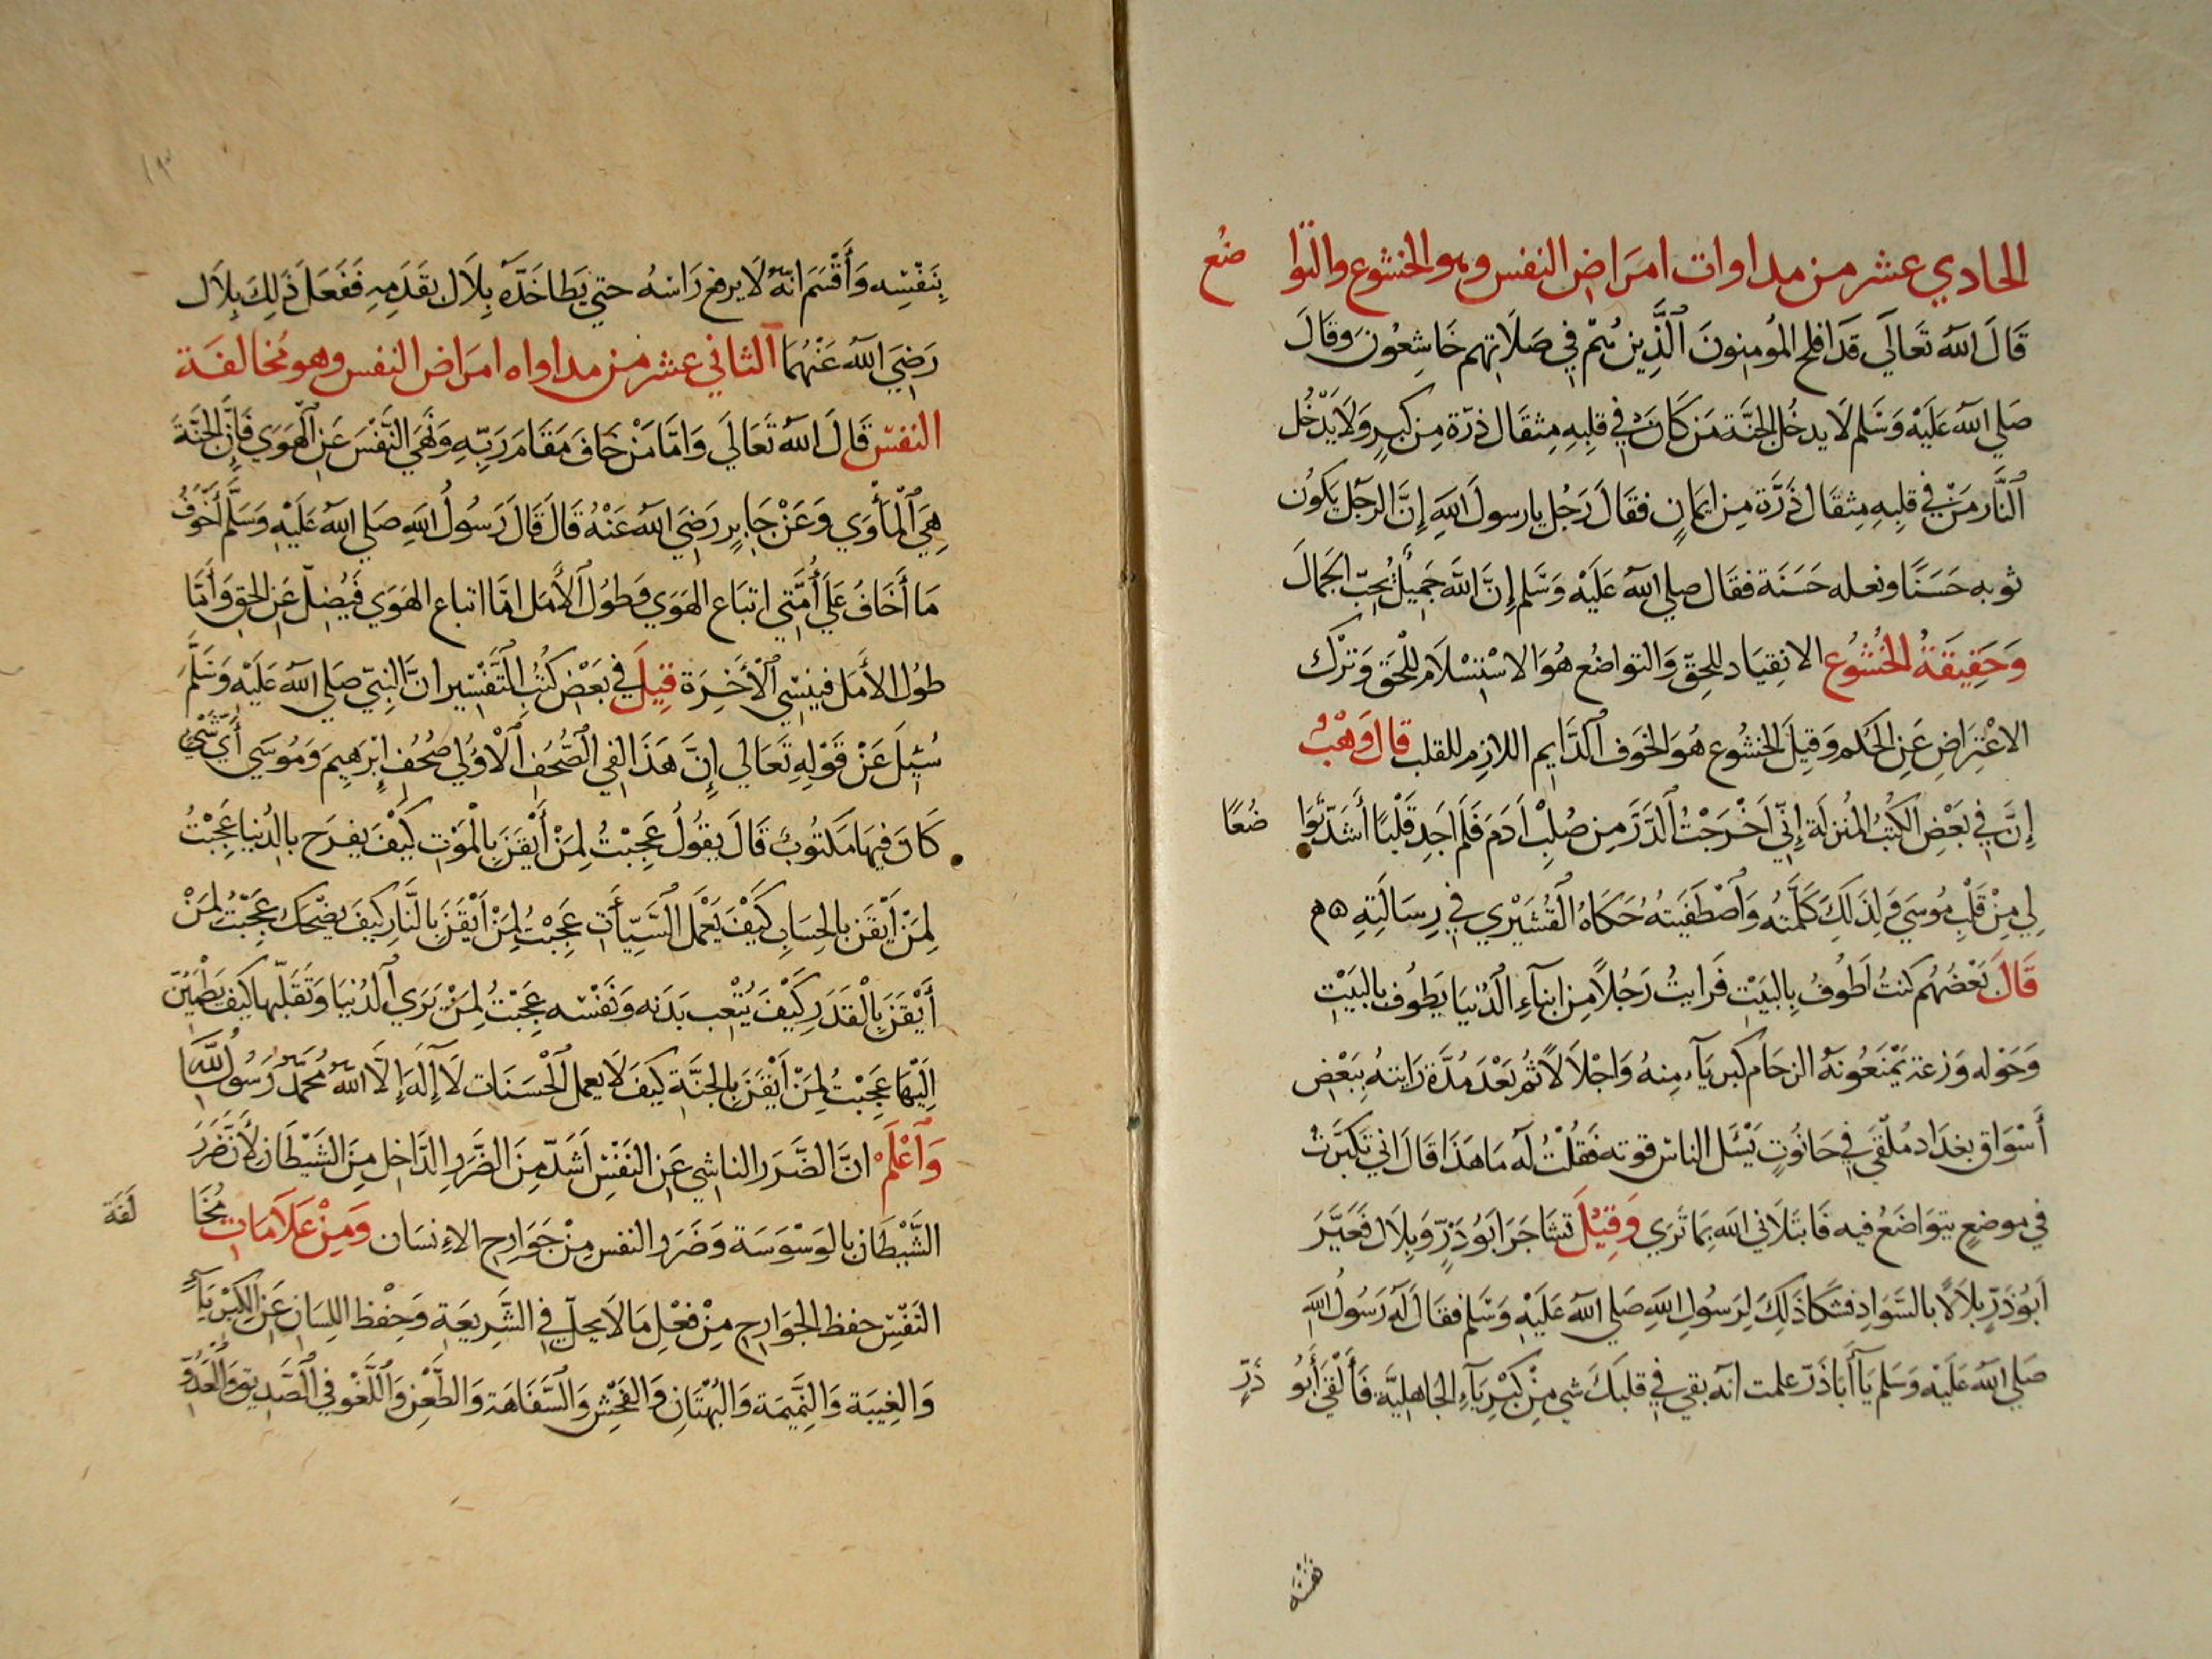 الحادي عشر من مداوات امراض النفس وهو الخشوع والتوا ضع
قَالَ اللّٰه تَعَالَي قَدَ افلح المُومِنونَ الَّذِينَ هُم فِي صَلَاتِهِم خَاشِعُونَ وَقَالَ
صَلي اللّٰه عَلَيْهِ وَسَلم لَا يدخُل الجنَّة مَن كَانَ فِي قلبِهِ مِثقَال ذرّة مِن كبرٍ وَلَا يَدْخُل
النَّار مَنْ في قلبِهِ مِثقَال ذَرَّة مِن ايمَانٍ فقَالَ رَجُل يا رسولَ اللّٰهِ إِنَّ الرجُل يَكوُن
ثوبه حَسَنًا ونعله حَسَنَة فقَال صلي اللّٰه عَلَيْهِ وَسَّلم إِنَّ اللَّه جَمِيْل يُحِبّ الجَمالَ
وَحَقِيقَةُ الخُشُوُع الانِقِيَاد للحِقّ وَالتواضُع هُوَ الاسْتِسْلَام لِلْحَقّ وَتَرْك
الاعْتِرَاضِ عَنِ الحُكم وَقِيلَ الخشُوع هُوَ الخَوف الدَّايِم اللازِم للقلب قال وَهْبٌ
إِنَّ فِي بَعْضِ الكتُبُ المُنزلَة إِنّي اَخْرَجْتُ الذَّرَ مِن صُلبِ اَدَمَ فَلَم اَجِد قَلْبًا أَشَدّ تَوَا ضُعًا
لِي مِنْ قَلْبِ مُوسَي فَلِذَلِكَ كَلَّمتُه وَاصْطَفَيتهُ حَكَاهُ القُشَيْرِي فِي رِسَالَتِهِ
قَالَ بَعْضُهُم كنتُ اَطُوفُ بِالبَيْتِ فَرَايتُ رَجُلاً مِن ابنَآءِ الدُنيَا يَطُوف بالبَيْتِ
وَحَوْله وَزعَة يَمْنَعُونَه الزحَام كبريَآء مِنهُ وَاجْلَالاً ثُم بَعْدَ مُدَّة رَايتهُ بِبَعْضِ
أَسْوَاق بغدَاد مُلْقَي فِي حَانُوتٍ يَسْئَل الناس قوته فَقُلْتُ لَه مَا هَذَا قَالَ اني تكَبَّرَتُ
فِي موضعٍ يتوَاضَعُ فيه فَابتَلَاني اللّٰه بِمَا تَرَي وَقِيْلَ تشَاجَرَ ابَوُ ذَرٍّ وَبِلَال فَعَيَّرَ
اَبوُ ذَرٍّ بلَالاً بالسَّوَادِ فشكَا ذَلِكَ لِرَسُولِ اللّٰهِ صَلي اللّٰه عَلَيْهِ وَسَلم فقَالَ لَه رَسُولُ اللّٰه
صَلي اللّٰه عَلَيْه وَسَلم يَا أَبَا ذَرّ علمت انه بقي فِي قلبكَ شي مِنْ كِبْرِيَآءِ الجاهِليَّة فَأَلْقي أَبوُ ذَرٍّ
نفسَه
بِنَفْسِه وَأَقْسَمَ انّهُ لَا يرفع رَاسَهُ حتي يَطَا خَدَّه بِلَال بقَدَمِهِ فَفَعَلَ ذَلِكَ بِلَال
رَضِيَ اللّٰه عَنْهُمَا الثاني عشر من مداواه امرَاض النفس وهو مُخالفَة
النفسْ قَالَ اللّٰه تَعَالَي وَامَّا مَنْ خَافَ مَقَامَ رَبِّهِ وَنَهَي النَّفْسَ عَنِ الْهَوَي فَإِنَّ الجَنَّةَ
هِيَ الْمَأْوَي وَعَنْ جَابِرٍ رَضِيَ اللّٰه عَنْهُ قَالَ قَالَ رَسُولُ اللّٰهِ صَلي اللّٰه عَلَيْهِ وَسَلَّم أَخْوَفُ
مَا أَخَافُ عَلَي أُمَّتِي اتبَاع الهَوَي وَطُول الأَمَل امَّا اتباع الهَوَي فَيُضِلّ عَنِ الحق وَأَمَّا
طُول الأَمَل فينسِي الْأَخِرَة قِيلَ فِي بَعْضِ كُتُبِ التَّفْسِير انَّ النبِيّ صَلي اللّٰه عَلَيْهِ وَسَلَّمَ
سُئِلَ عَنْ قَوْلِهِ تَعَالي إِنَّ هَذَا لفِي الصُّحُفِ الْاوُلي صُحُفِ إِبْرَهِيمَ وَمُوسَي أَيّ شَيْ
كَانَ فِيهَا مَكتُوبٌ قَالَ يقُولُ عَجِبْتُ لِمَنْ أَيْقَنَ بِالْمَوْتِ كَيْفَ يفرَح بالدُنيا عَجِبْتُ
لِمَنْ أَيْقَنَ بالحِسَابِ كَيْفَ يَعْمَل السَّيِّأَتِ عَجِبْتُ لِمَنْ أَيْقَنَ بالنَّارِ كيفَ يضْحَك عَجِبْتُ لِمَنْ
أَيْقَنَ بِالْقَدَرِ كَيْفَ يُتْعِب بَدَنه وَنَفْسه عَجِبْتُ لِمَنْ يَرَي الدُنيَا وَتَقَلّبهَا كيْفَ يَطْمَئِنّ
اِلَيْهَا عَجِبْتُ لِمَنْ اَيْقَنَ بِالجَنَّة كيَفَ لَا يعمل الْحَسَنَات لَا إِلَه إِلَّا اللّٰه مُحَمَّد رَسُولُ اللّٰه
وَاعْلَمْ انَّ الضَّرَر الناشِي عَنِ النَفْسِ اَشَدّ مِنَ الضَّرَرِ الدَّاخِل مِنَ الشَيْطَانِ لأَنَّ ضَرَرَ
الشَّيْطَانِ بالوَسْوَسَة وَضَرَر النفس مِنْ جَوَارِحِ الاِنسَان وَمِنْ عَلَامَاتِ مُخَا لَفَة
النَفْسِ حِفظ الجَوَارِحِ مِنْ فعْلِ مَا لَا يحلّ فِي الشَّرِيعَةِ وَحِفْظ اللِسَانِ عَنِ الكِبْرِيَآءِ
وَالغِيبَة وَالنَّمِيمَة وَالبُهْتَانِ وَالفَحْشِ وَالسَّفَاهَة وَالطَّعْنِ وَاللَّغْو فِي الصَّدِيق وَالْعَدُوِّ